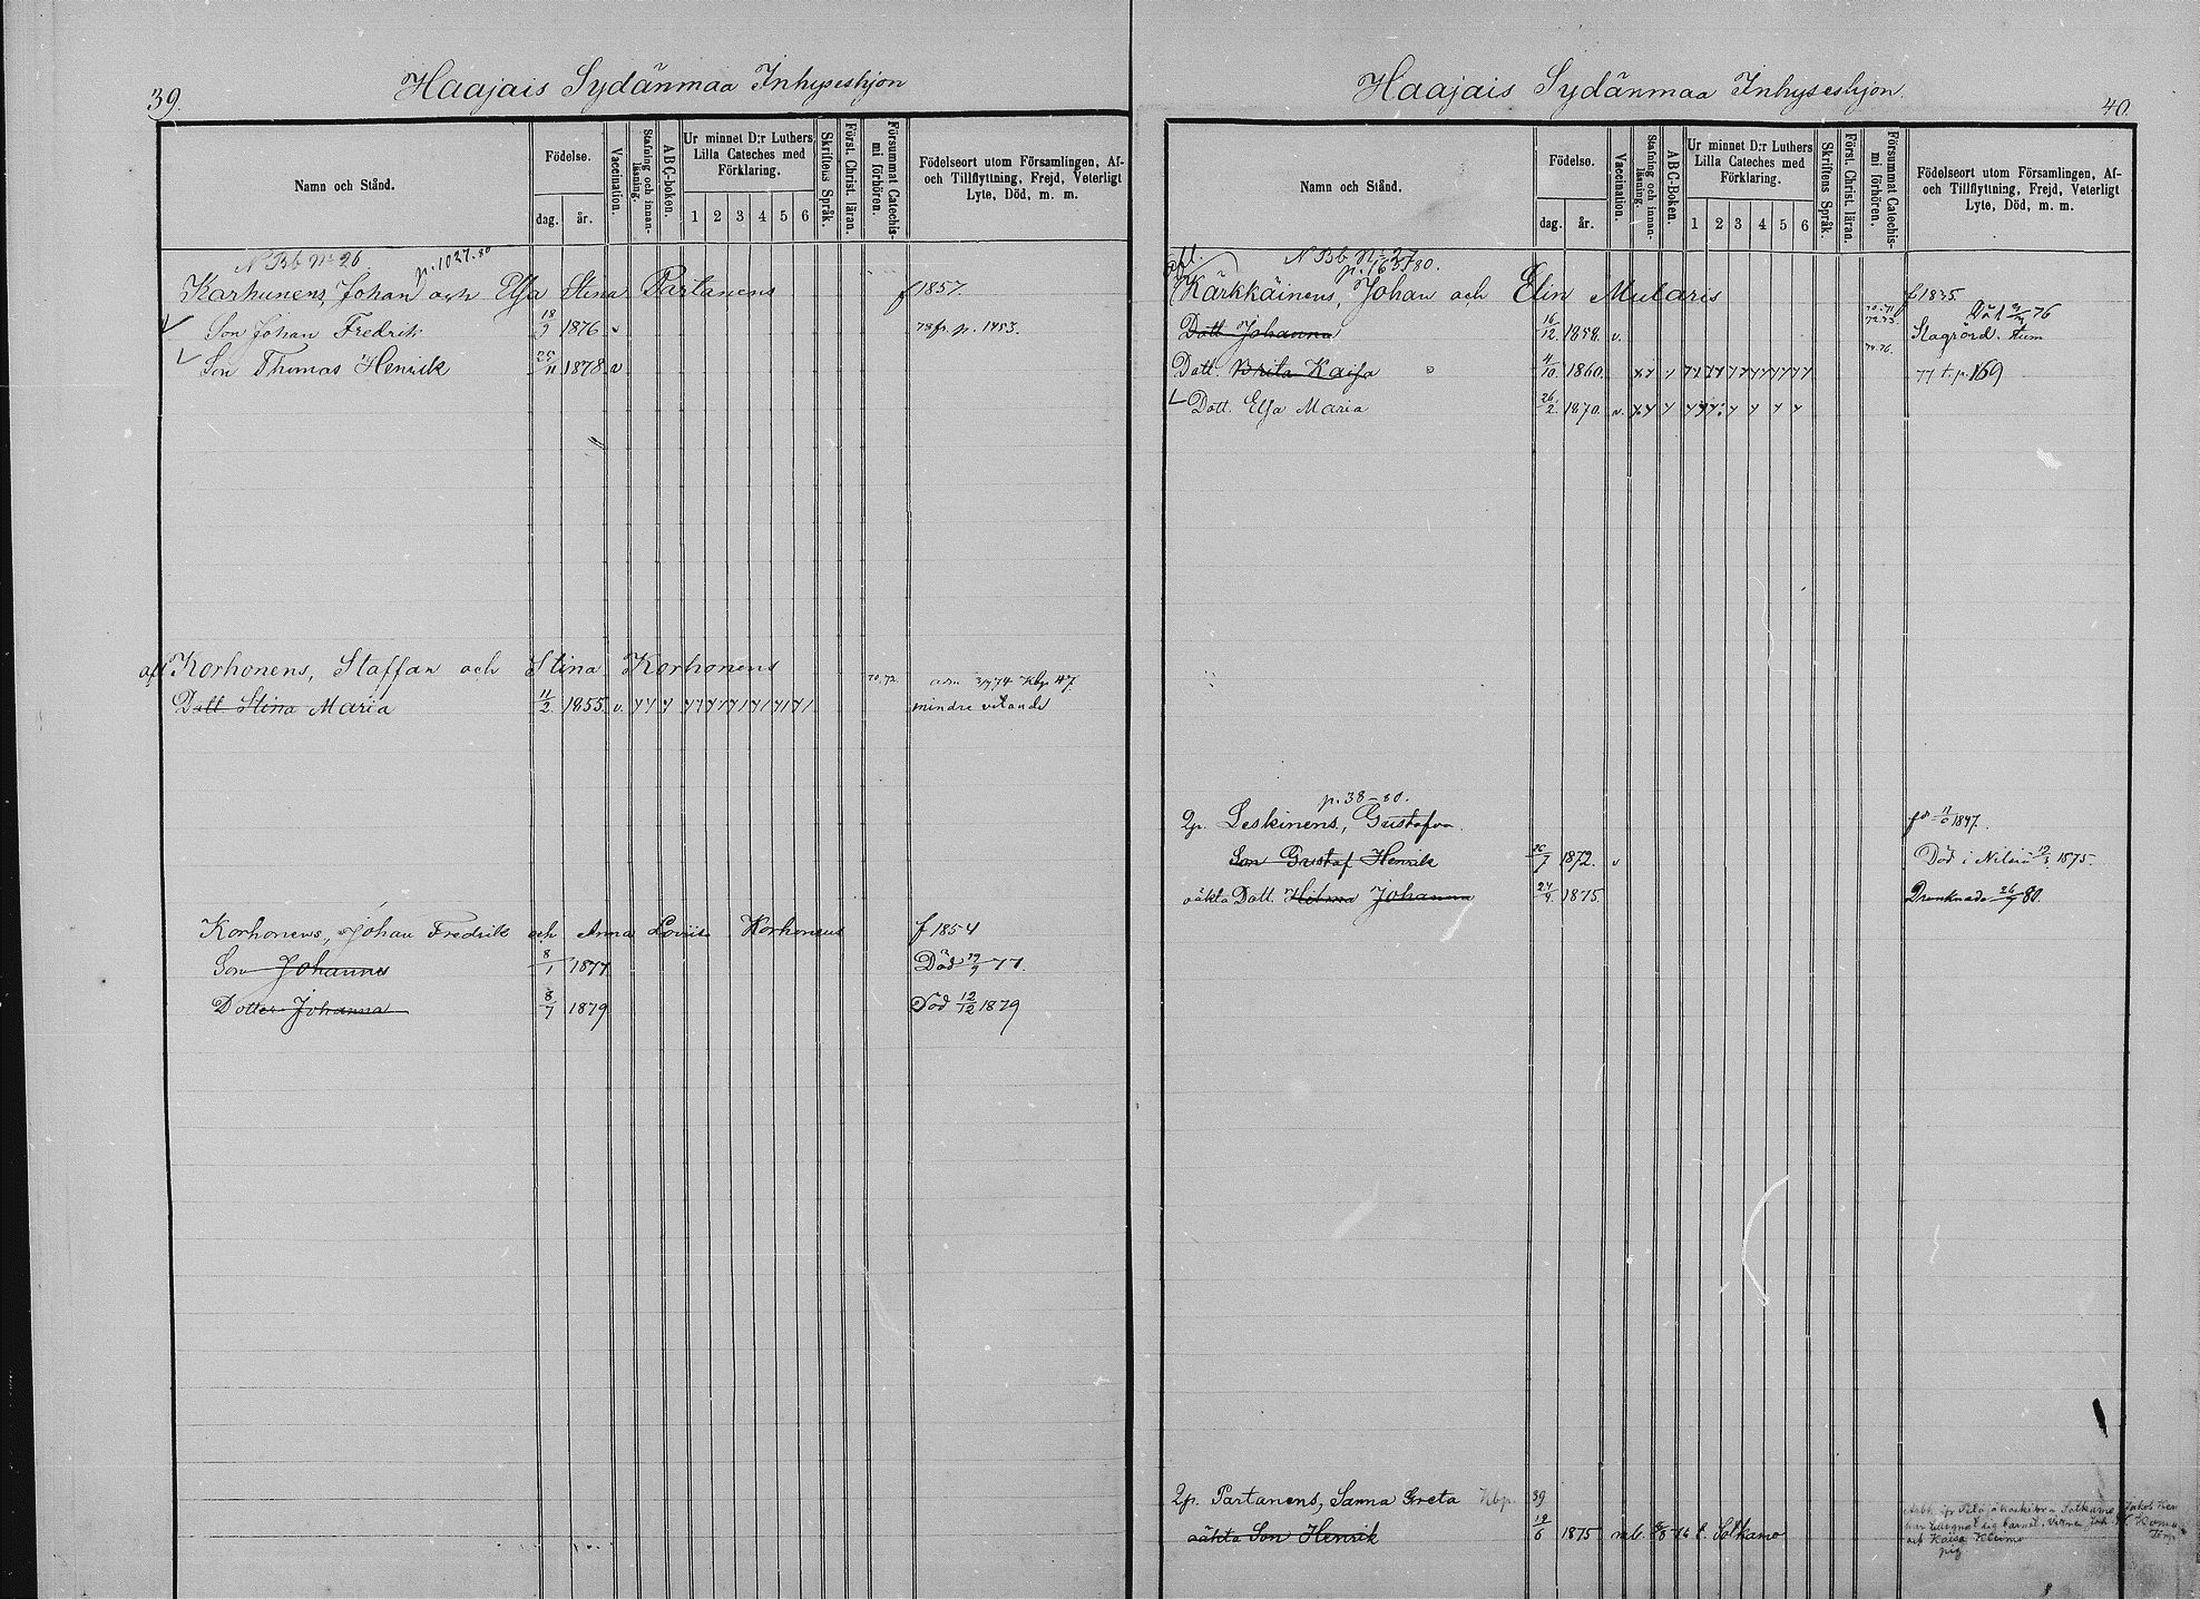 39.
Haajais Sydänmaa Inhyseshjon
Namn och Stånd.
Födelse.
dag.
år.
Vaccination.
Stafning och innan-
läsning.
ABC-boken.
Ur minnet D:r Luthers
Lilla Cateches med
Förklaring.
1 2 3 4 5 6
Skriftens Språk.
Först. Christ. läran.
Försummat Catechis-
mi förhören.
Födelseort utom Församlingen, Af-
och Tillflyttning, Frejd, Veterligt
Lyte, Död, m. m.
N Bb No 26 p. 1027.80
Karhunens, Johan och Elsa Stina Partanens f 1857.
Son Johan Fredrik 18/9 1876 v 78 fr. p. 1453.
Son Thomas Henrik 25/11 1878 v
afl Korhonens, Staffan och Stina Korhonens
Dott Stina Maria 11/2 1855 v. 70.72. mindre vetande
Korhonens, Johan Fredrik och Anna Lovisa Korhonens f 1854
Son Johannes 8/1 1877 Död 19/9 77.
Dotter Johanna 8/7 1879 Död 12/12 1879
Haajais Sydänmaa Inhyseshjon.
40.
Namn och Stånd.
Födelse.
dag.
år.
Vaccination.
Stafning och innan-
läsning.
ABC-Boken.
Ur minnet D:r Luthers
Lilla Cateches med
Förklaring.
1 2 3 4 5 6
Skriftens Språk.
Först. Christ. läran.
Försummat Catechis-
mi förhören.
Födelseort utom Församlingen, Af-
och Tillflyttning, Frejd, Veterligt
Lyte, Död, m. m.
afl. N Bb No 27
Kärkkäinens, Johan och Elin Mularis f 1835.
Dott Johanna 16/12. 1858. v. Slagrörd. stum
Dott. Brita Kaisa 4/10. 1860. 77 t. p. 169
Dott. Elsa Maria 26/2. 1870. v.
p. 38-80.
Qp. Leskinens, Gustafva. 1847.
Son Gustaf Henrik 1872. v Död i Nilsiä 1875.
oäkta Dott. Hilma Johanna 27/4. 1875. Drunknade 80.
Qp. Partanens, Sanna Greta Kbp. 39
oäkta Son Henrik 19/6 1875 t. Sotkamo